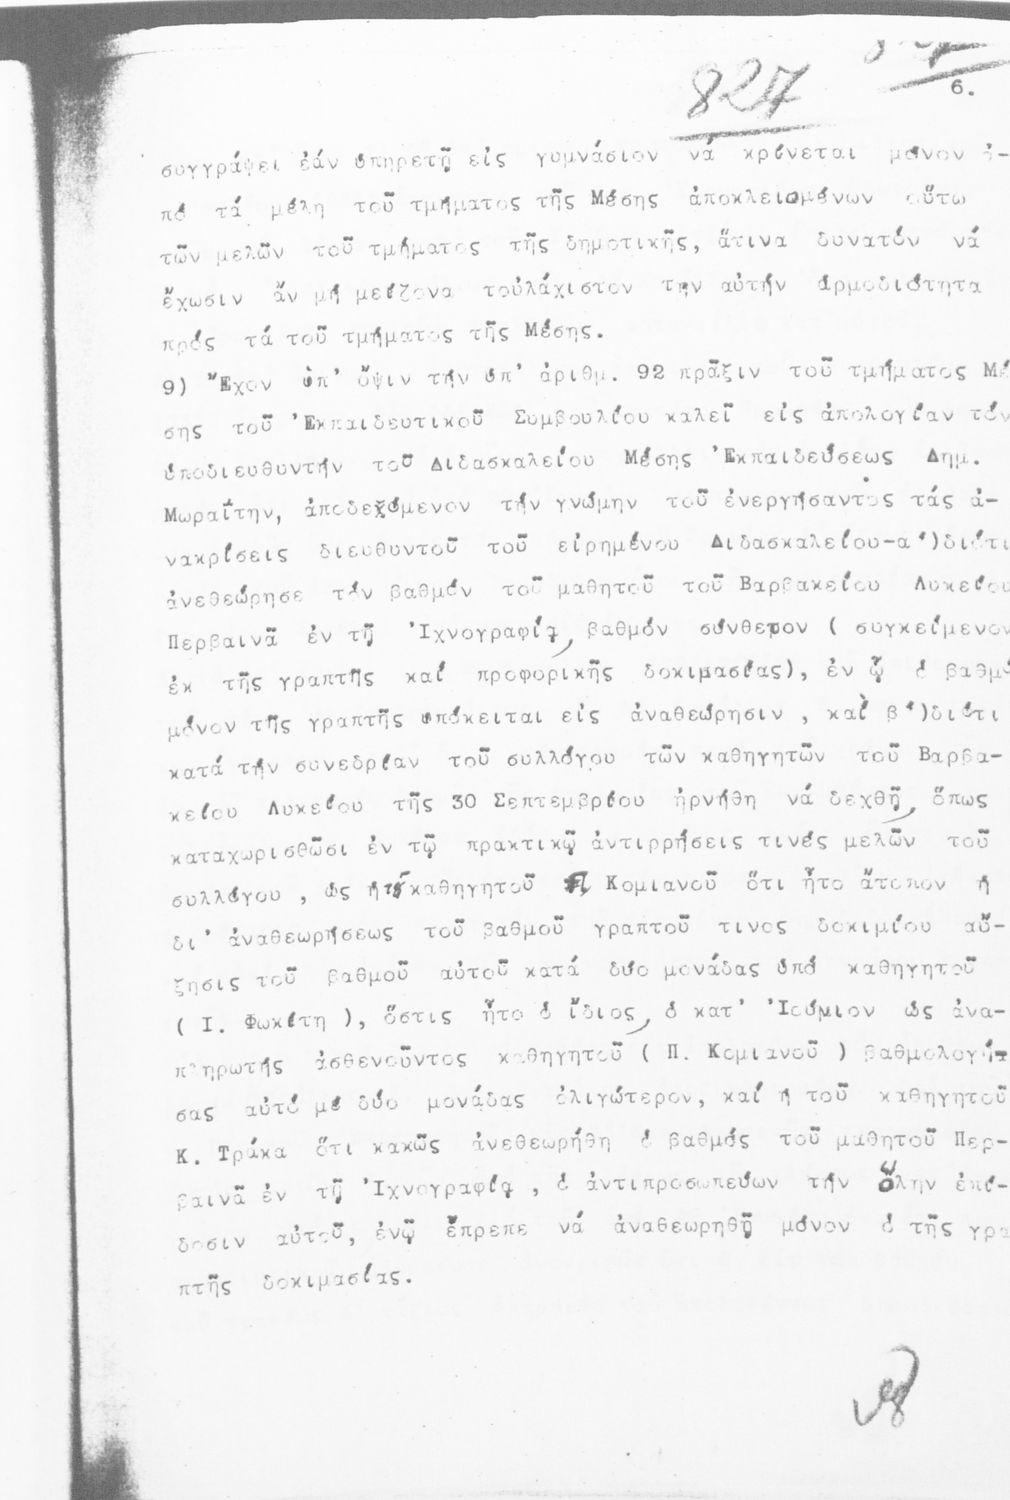 827
6.
συγγράψει ἐάν ὑπηρετῇ εἰς γυμνάσιον νά κρίνεται μόνον ἀ-
πό τά μέλη τοῦ τμήματος τῆς Μέσης ἀποκλειομένων οὕτω
τῶν μελῶν τοῦ τμήματος τῆς δημοτικῆς, ἅτινα δυνατόν νά
ἔχωσιν ἄν μή μείζονα τοὐλάχιστον την αὐτήν ἁρμοδιότητα
πρός τά τοῦ τμήματος τῆς Μέσης.
9) Ἔχον ὑπ' ὄψιν τήν ὑπ' ἀριθμ. 92 πρᾶξιν τοῦ τμήματος Μέ
σης τοῦ Ἐκπαιδευτικοῦ Συμβουλίου καλεῖ εἰς ἀπολογίαν τόν
ὑποδιευθυντήν τοῦ Διδασκαλείου Μέσης Ἐκπαιδεύσεως Δημ.
Μωραΐτην, ἀποδεχόμενον τήν γνώμην τοῦ ἐνεργήσαντος τάς ἀ-
νακρίσεις διευθυντοῦ τοῦ εἰρημένου Διδασκαλείου-α')διότι
ἀνεθεώρησε τόν βαθμόν τοῦ μαθητοῦ τοῦ Βαρβακείου Λυκείου
Περβαινᾶ ἐν τῇ Ἰχνογραφίᾳ, βαθμόν σύνθετον ( συγκείμενον
ἐκ τῆς γραπτῆς καί προφορικῆς δοκιμασίας), ἐν ᾧ ὁ βαθμό
μόνον τῆς γραπτῆς ὑπόκειται εἰς ἀναθεώρησιν , καὶ β')διότι
κατά τήν συνεδρίαν τοῦ συλλόγου τῶν καθηγητῶν τοῦ Βαρβα-
κείου Λυκείου τῆς 30 Σεπτεμβρίου ἠρνήθη νά δεχθῇ, ὅπως
καταχωρισθῶσι ἐν τῷ πρακτικῷ ἀντιρρήσεις τινές μελῶν τοῦ
συλλόγου , ὡς ἡ τοῦ καθηγητοῦ Π. Κομιανοῦ ὅτι ἦτο ἄτοπον ἡ
δι' ἀναθεωρήσεως τοῦ βαθμοῦ γραπτοῦ τινος δοκιμίου αὔ-
ξησις τοῦ βαθμοῦ αὐτοῦ κατά δύο μονάδας ὑπό καθηγητοῦ
( Ι. Φωκίτη ), ὅστις ἦτο ὁ ἴδιος, ὁ κατ' Ἰούνιον ὡς ἀνα-
πληρωτής ἀσθενοῦντος καθηγητοῦ ( Π. Κομιανοῦ ) βαθμολογή-
σας αὐτό μέ δύο μονάδας ὀλιγώτερον, καί ἡ τοῦ καθηγητοῦ
Κ. Τράκα ὅτι κακῶς ἀνεθεωρήθη ὁ βαθμός τοῦ μαθητοῦ Περ-
βαινᾶ ἐν τῇ Ἰχνογραφίᾳ , ὁ ἀντιπροσωπεύων τήν ὅλην ἐπί-
δοσιν αὐτοῦ, ἐνῷ ἔπρεπε νά ἀναθεωρηθῇ μόνον ὁ τῆς γρα
πτῆς δοκιμασίας.